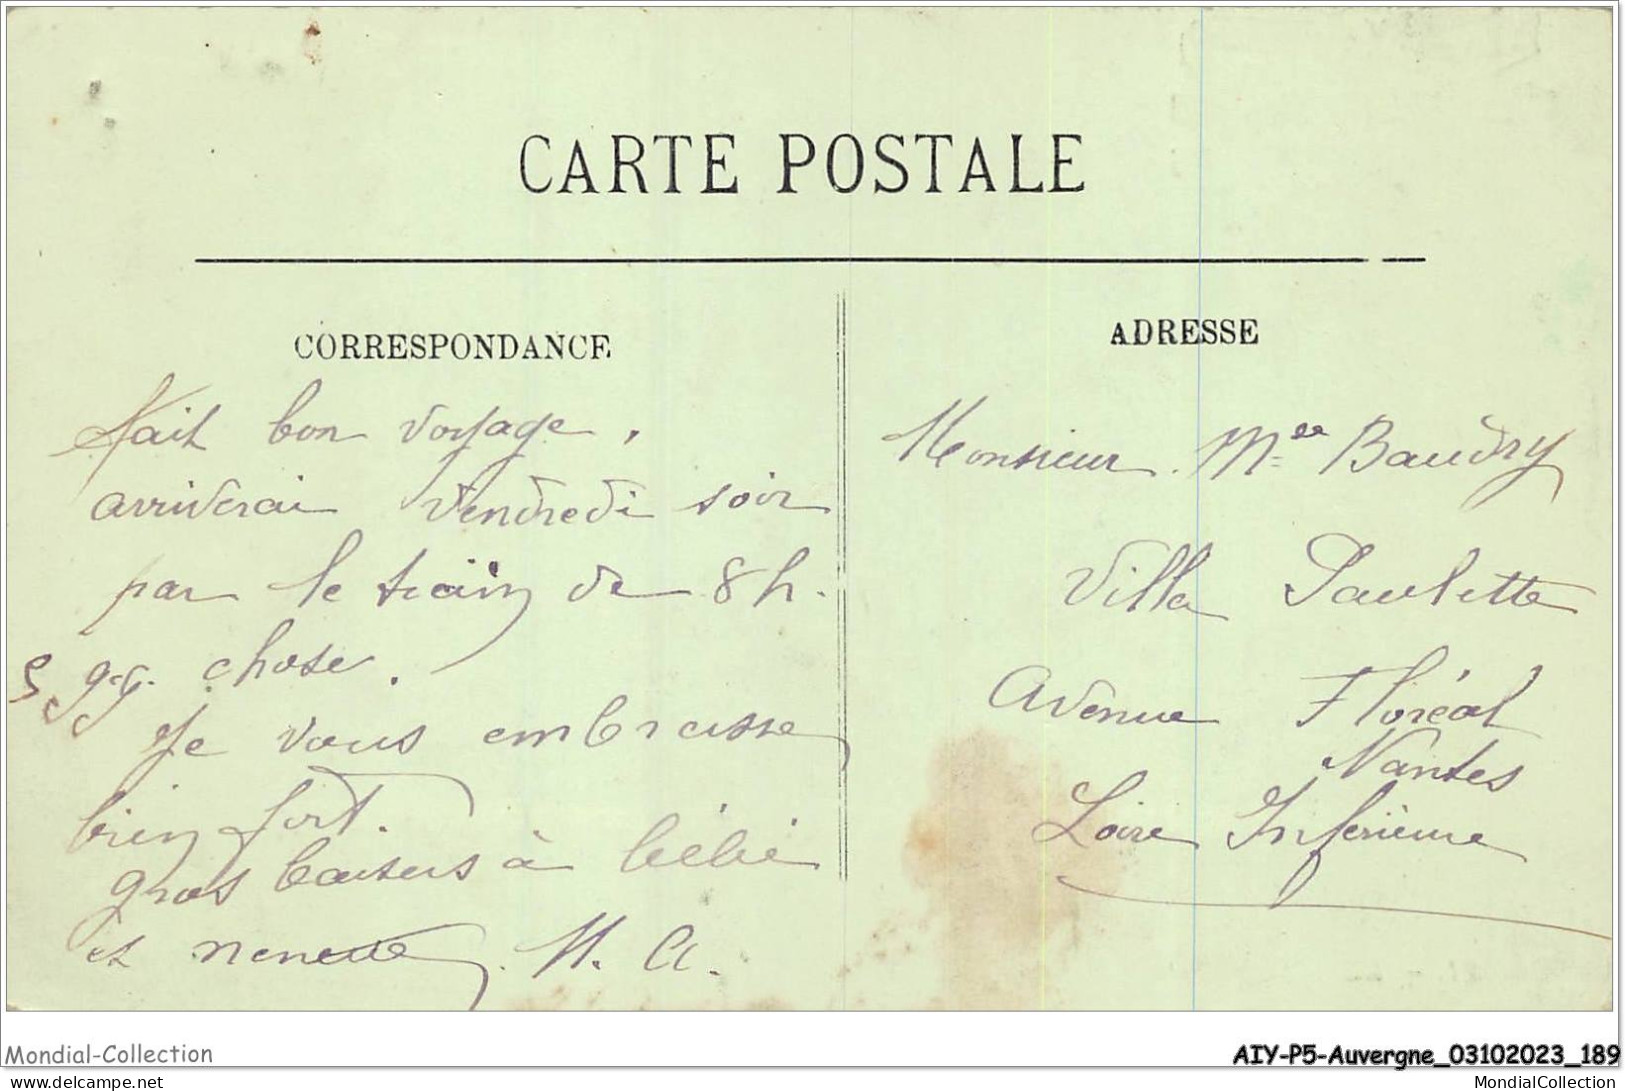 CARTE POSTALE
CORRESPONDANCE
fait bon voyage,
arriverai vendredi soir
par le train de 8h.
qq. chose.
Je vous embrasse
bien fort.
gros baisers à bébé
et nenette. M. A.
ADRESSE
Monsieur Mme Baudry
Villa Paulette
Avenue Floréal
Nantes
Loire Inférieure
Mondial-Collection
AIY-P5-Auvergne_03102023_189
www.delcampe.net
MondialCollection